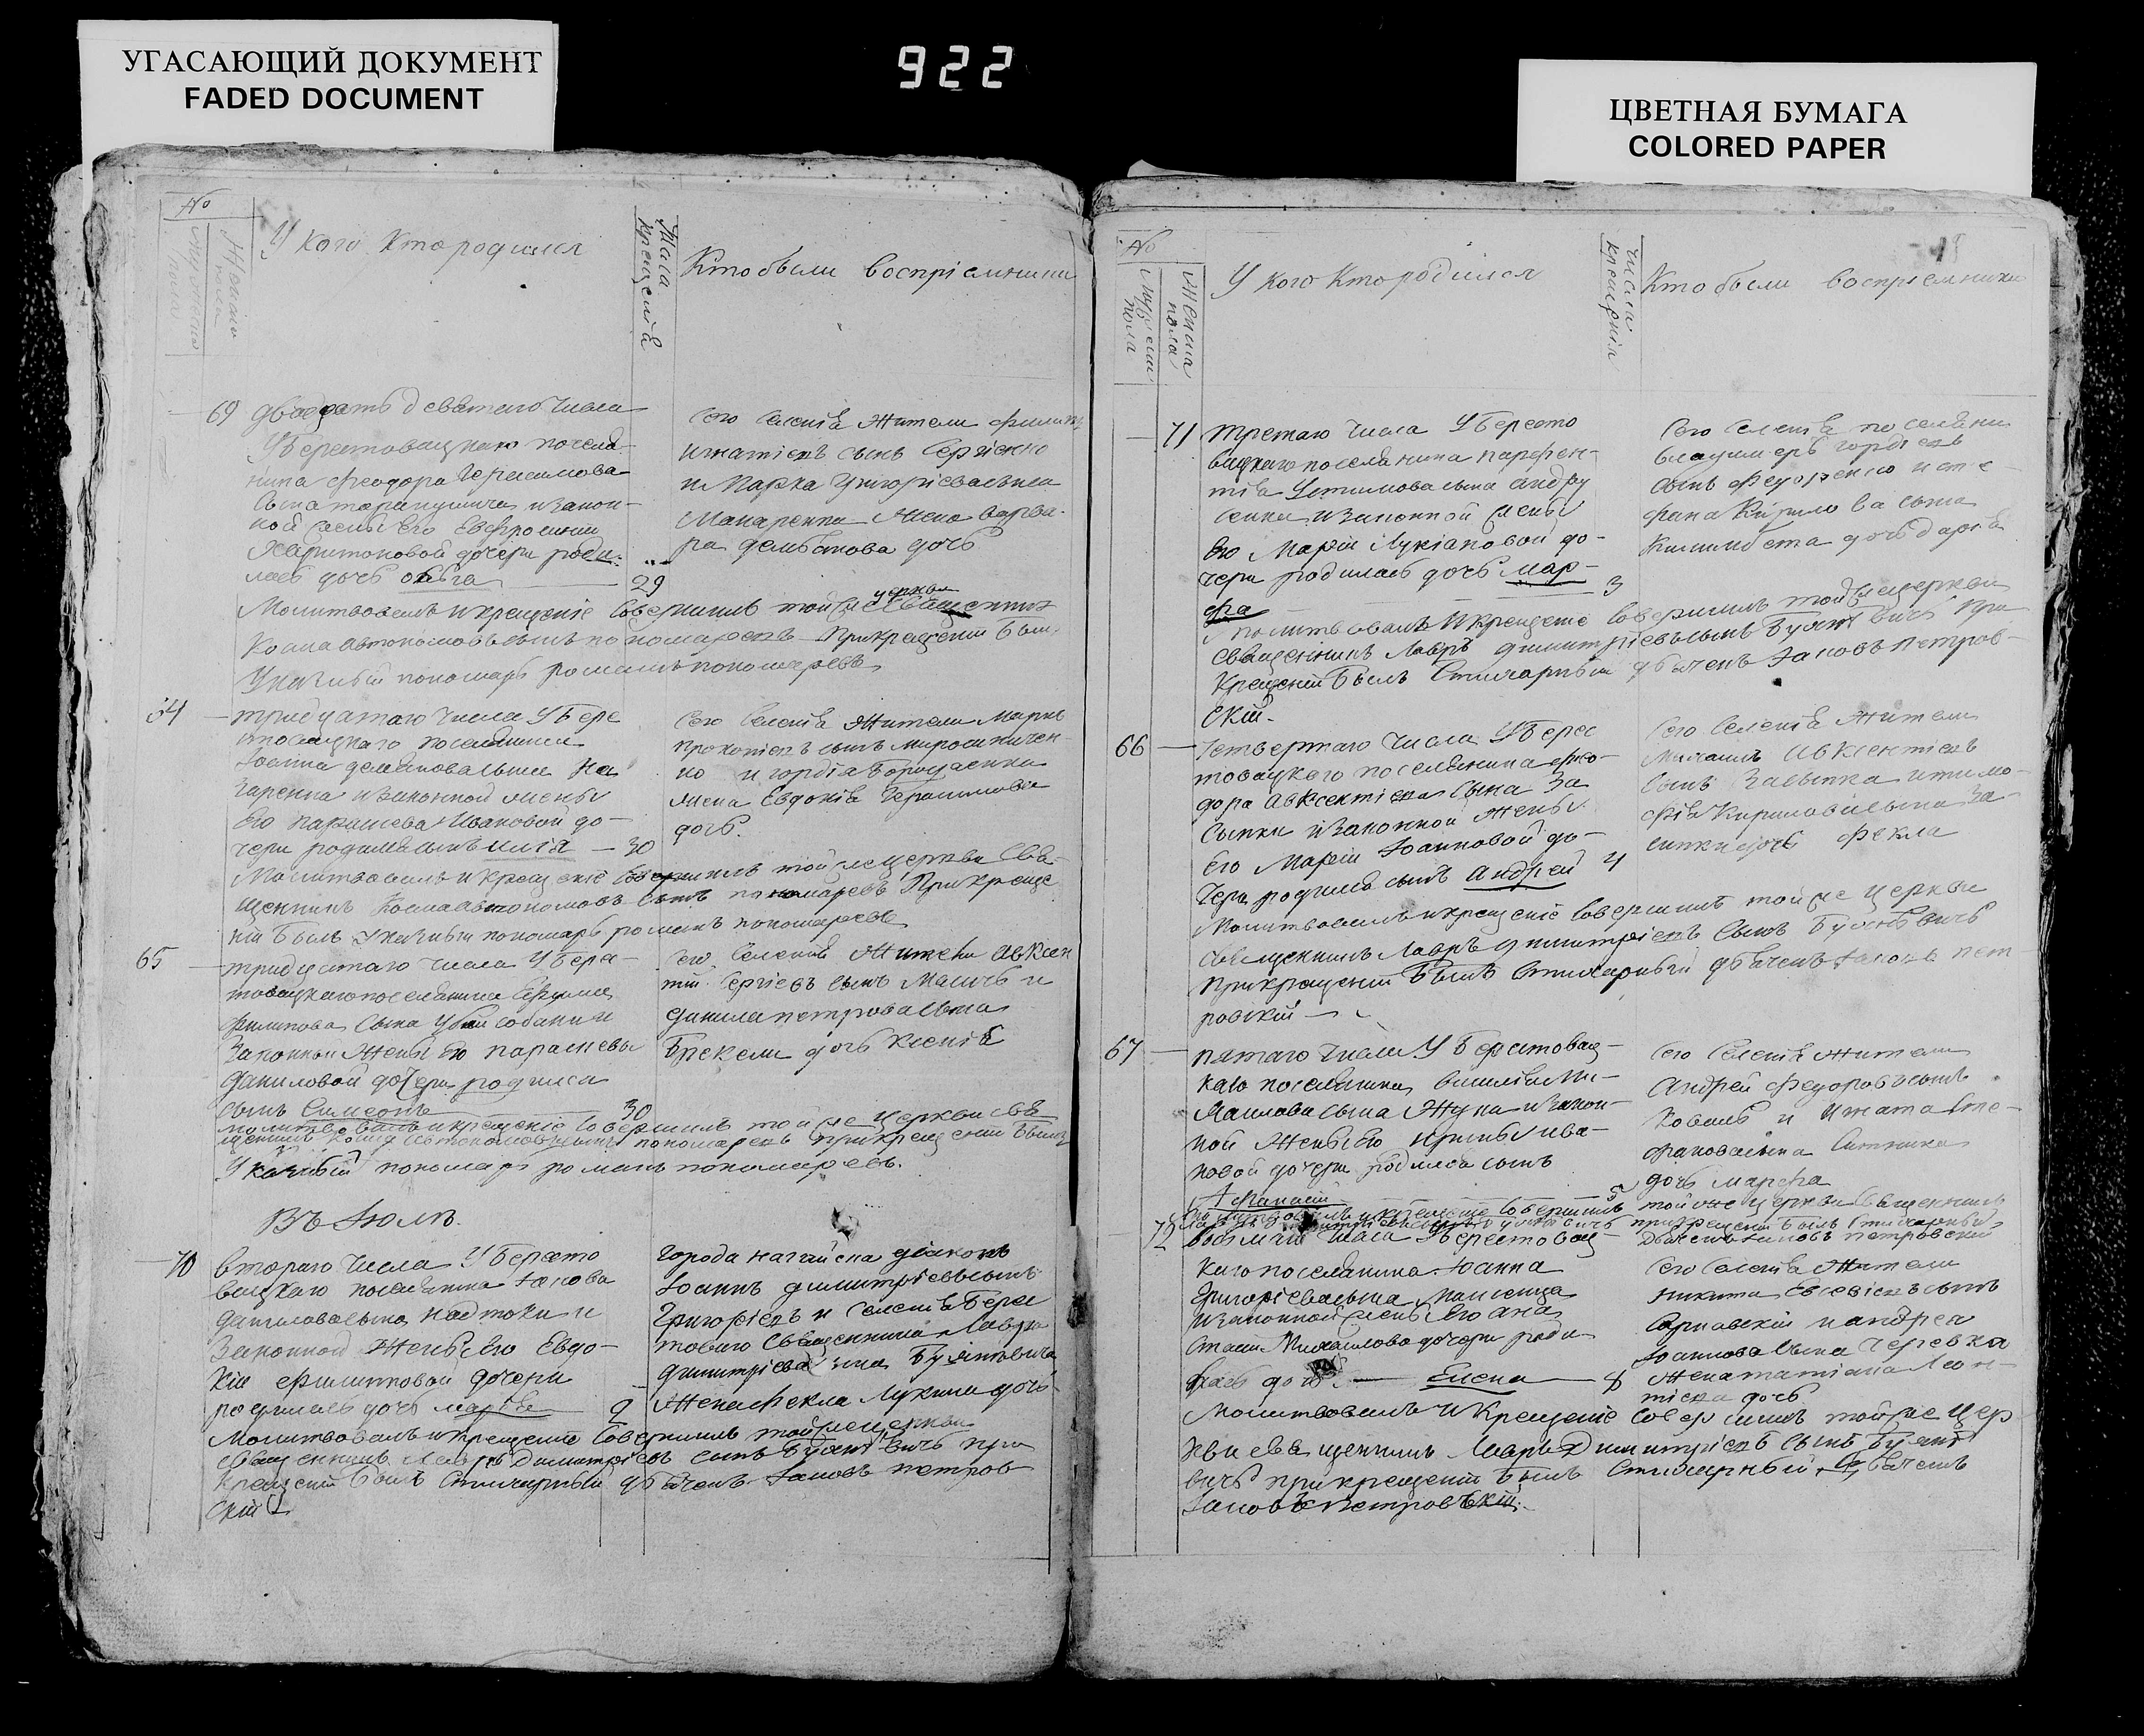 УГАСАЮЩИЙ ДОКУМЕНТ
FADED DOCUMENT
922
ЦВЕТНАЯ БУМАГА
COLORED PAPER
№
Женска пола
У кого кто родился
Числа крещенія
Кто были воспріемники
69 двадцать девятаго числа
У Берестовацкаго поселя
нина Феодора Герасимова
сына изакон
ной жены его Евфросиніи
Харитоновой дочери роди
лась дочь Ольга 29
Сего Селенія Жители Филипъ
Игнатіевъ сынъ Сергіенко
и Марка Григоріева сына
Макаренка Жена Варва
ра Демьянова дочь
Молитвовалъ и крещеніе Совершилъ той же церкви Священникъ
Косма Автономовъ сынъ пономаревъ При крещеніи былъ
Указный пономарь романъ пономаревъ
64 тридцатаго числа У Бере
стовацкаго поселянина
Іоанна Демьянова сына На
заренка и законной жены
его Параскева Ивановой до
чери родился сынъ Илія 30
Сего Селенія Жители Марко
Прокопіевъ сынъ Мирошничен
ко и Гордія Бородаенка
жена Евдокія Герасимова
дочь.
Молитвовалъ и крещеніе Совершилъ той же церкви Свя
щенникъ Косма Автономовъ Сынъ пономаревъ При креще
ніи былъ Указный пономарь романъ пономаревъ
65 тридцатаго числа У Бере
стовацкаго поселянина
Филипова Сына Убейсобаки и
Законной Жены Его Парасковы
Даниловой дочери родился
сынъ Симеонъ 30
Сего Селенія Жители Авксен
тій Сергіевъ сынъ Масичъ и
Данила Петрова сына
дочь Ксенія
Молитвовалъ и крещеніе Совершилъ той же Церкви Свя
щенникъ Косма Автономовъ сынъ пономаревъ При крещеніи былъ
Указный пономарь романъ пономаревъ.
Въ Іюлѣ.
70 втораго Числа У Бересто
вацкаго поселянина Іакова
Данилова сына и
Законной Жены Его Евдо
кіи Филиповой дочери
родилась дочь Марія 2
Города Нагайска діаконъ
Іоаннъ Димитріевъ сынъ
Григоріевъ и Селенія Берес
товаго Священника Лавра
Димитріева сына Буяновича
Жена Фекла Лукина дочь
Молитвовалъ и крещеніе Совершилъ той же церкви
Священникъ Лавръ Димитріевъ сынъ Буяновичъ При
крещеніи былъ Стихарный дьячекъ Іаковъ Петров
скій
№
Мужеска пола
Женска пола
У кого кто родился
Числа крещенія
Кто были воспріемники
71 третяго Числа У Бересто
вацкаго поселянина Парфен
тія Устимова сына Андру
сенка и законной жены
Его Маріи Лукіановой до
чери родилась дочь Мар
фа 3
Сего Селенія поселяни
Владимеръ Гордіевъ
сынъ Федоренко и Сте
фана Кирилова сына
дочь Дарія
Молитвовалъ и Крещеніе Совершилъ той же церкви
Священникъ Лавръ Димитріевъ сынъ Буяновичъ При
Крещеніи Былъ Стихарный дьячекъ Іаковъ Петров
скій.
66 Четвертаго Числа У Берес
товацкаго поселянина Фео
дора Авксентіева Сына За
сыпки и законной Жены
Его Маріи Іоанновой до
чери родился сынъ Андрей 4
Сего Селенія Жители
Михаилъ Авксентіевъ
сынъ Засыпка и Тимо
фія Кирилова сына За
сипки дочь Фекла
Молитвовалъ и крещеніе Совершилъ той же Церкви
Священникъ Лавръ Димитріевъ Сынъ Буяновичъ
При крещеніи Былъ Стихарный дьячекъ Іаковъ Пет
ровскій
67 пятаго Числа У Берестовац
каго поселянина Василія Ми
хаилова сына Жука и закон
ной Жены Его Ирины Ива
новой дочери родился сынъ
Афанасій 5
Сего Селенія Жители
Андрей Федоровъ сынъ
Коваль и Игната Сте
фанова сына Ситника
дочь Марфа
Молитвовалъ и крещеніе Совершилъ той же Церкви Священникъ
Лавръ Димитріевъ сынъ Буяновичъ при крещеніи былъ Стихарный
дьячекъ Іаковъ Петровскій
72 восмаго числа У Берестовац
каго поселянина Іоанна
Григоріева сына Моисеица
и законной жены Его Ана
стасіи Михаиловой дочери роди
лась дочь Елена 8
Сего Селенія Жители
Никита Евсевіевъ сынъ
Сарнавскій и Андрея
Іоаннова сына Черевка
жена Татіана Леон
тіева дочь
Молитвовалъ и Крещеніе Совершилъ той же Цер
кви Священникъ Лавръ Димитріевъ Сынъ Буяно
вичъ При крещеніи былъ Стихарный дьячекъ
Іаковъ Петровскій.